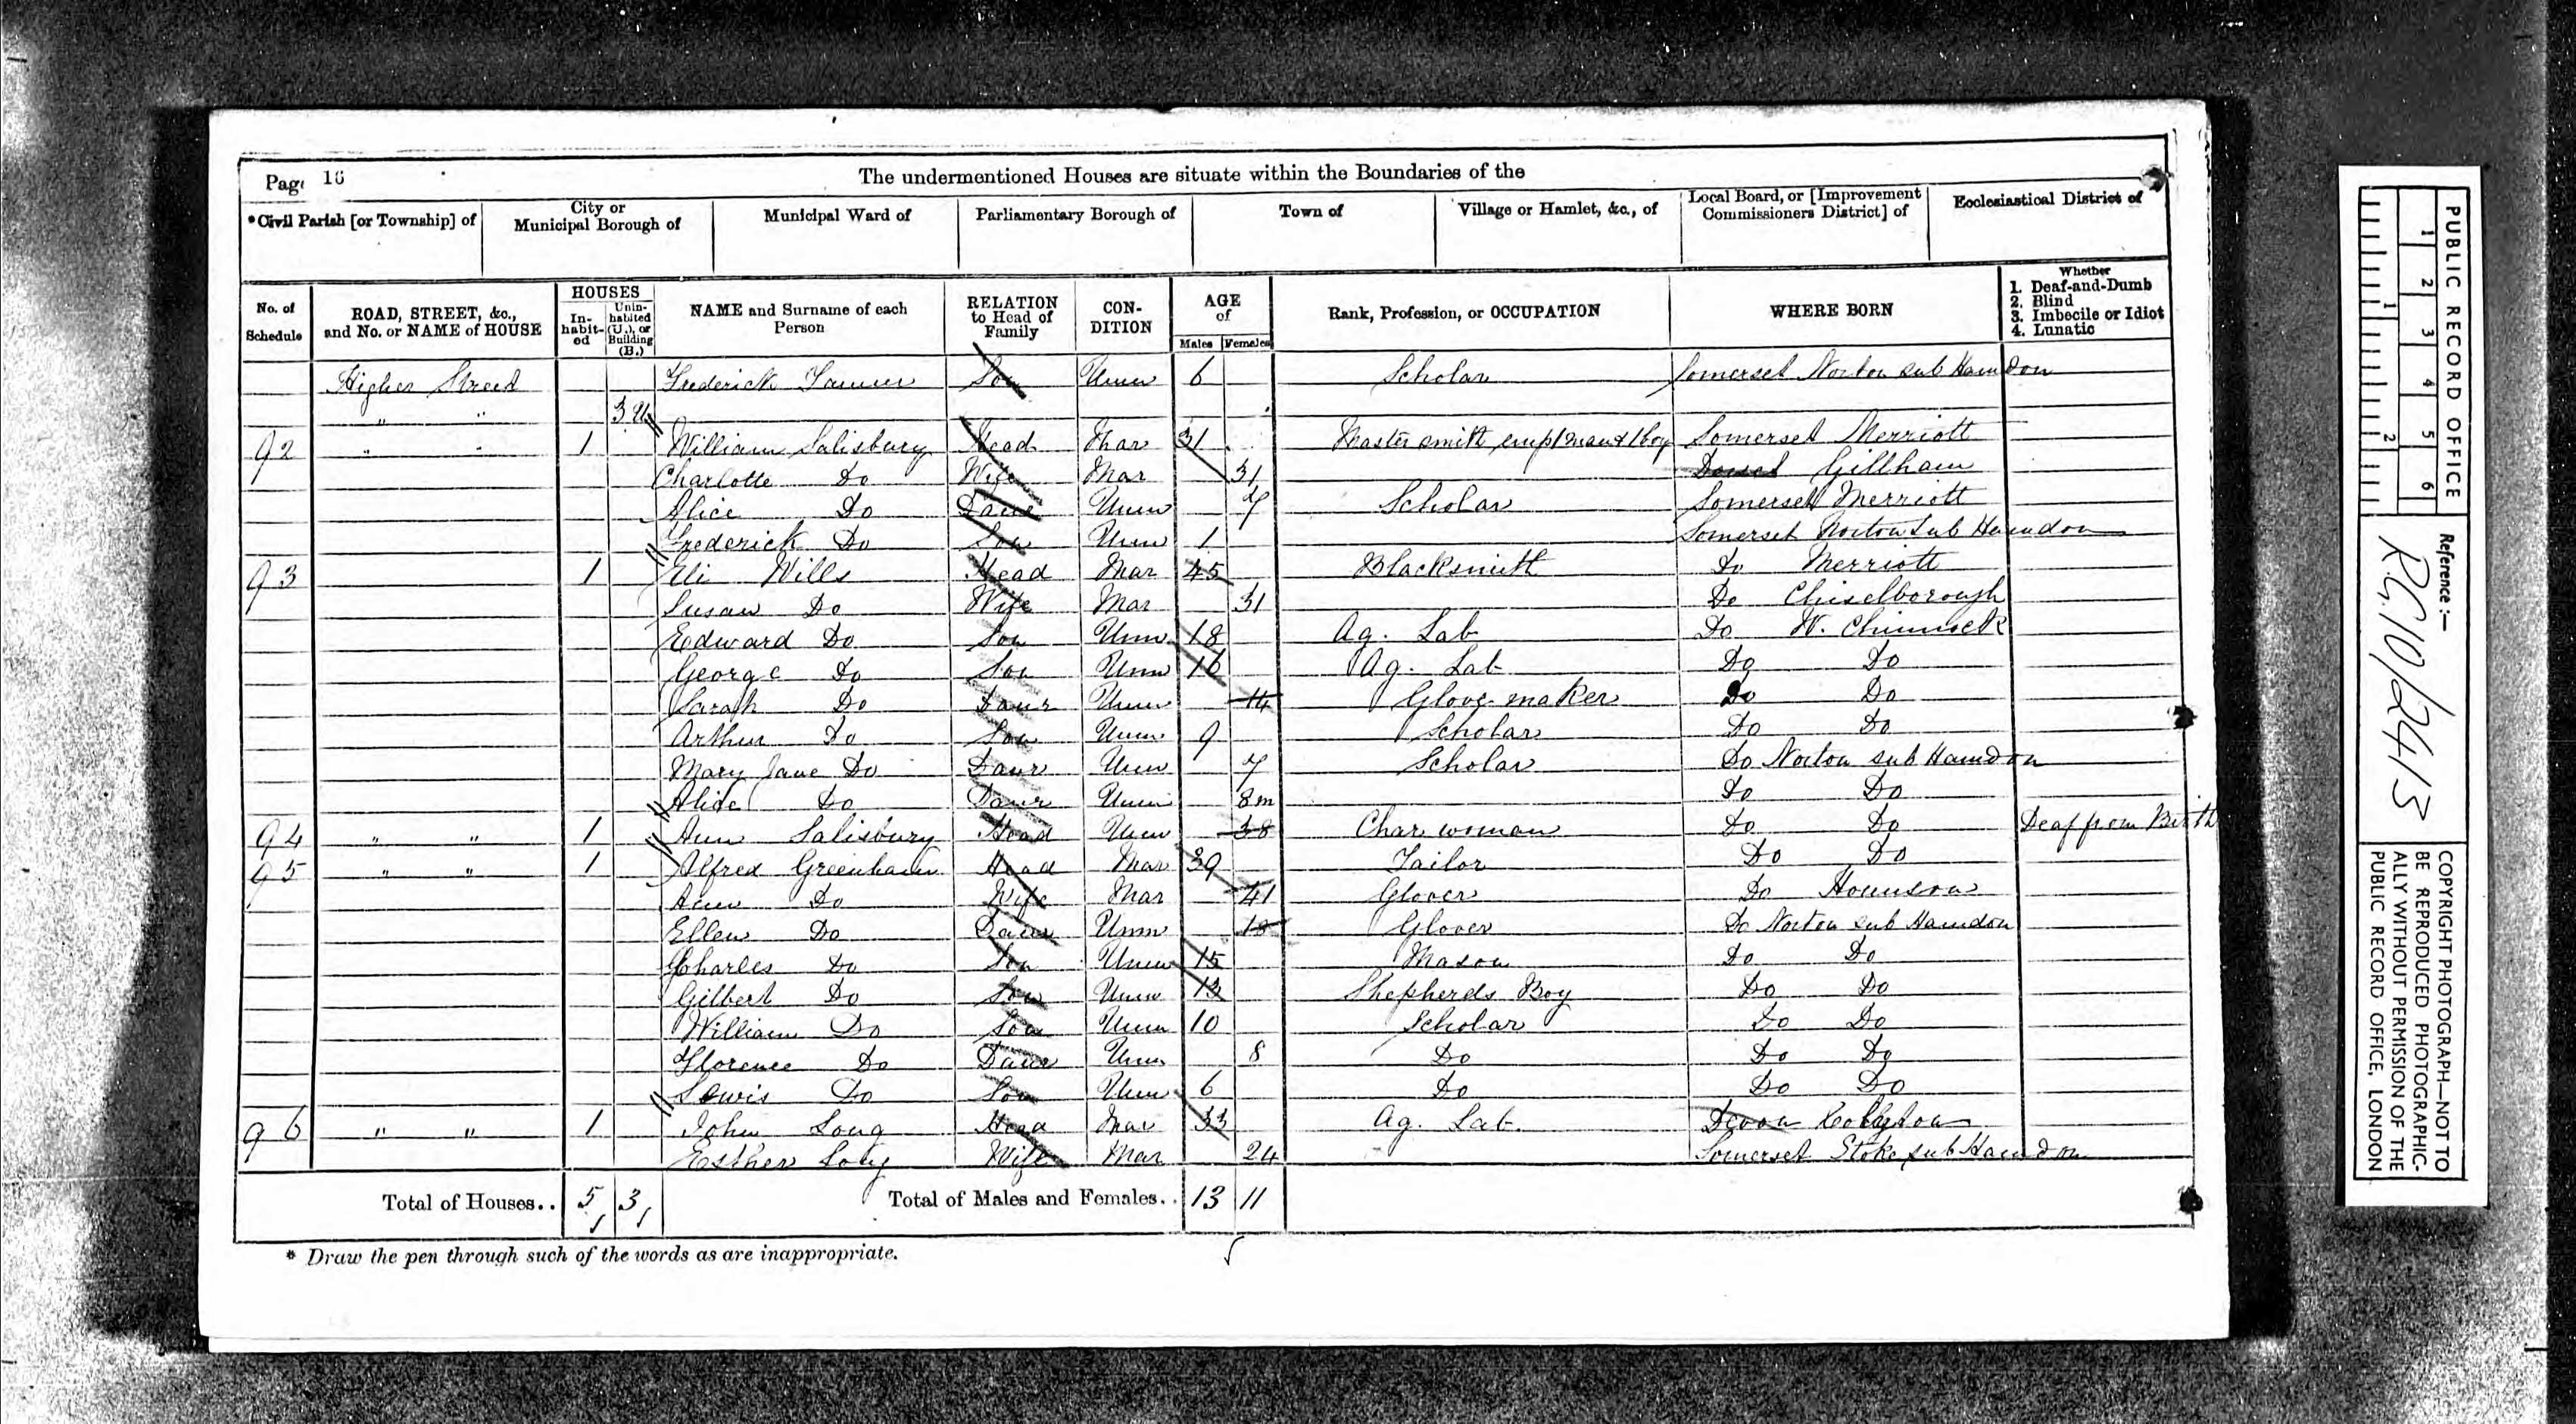 Page 16
The undermentioned Houses are situate within the Boundaries of the
*Civil Parish [or Township] of
City or Municipal Borough of
Municipal Ward of
Parliamentary Borough of
Town of
Village or Hamlet, &c., of
Local Board, or [Improvement Commissioners District] of
Ecclesiastical District of
No. of Schedule
ROAD, STREET, &c., and No. or NAME of HOUSE
HOUSES
In-habit-ed
Unin-habited (U.), or Building (B.)
NAME and Surname of each Person
RELATION to Head of Family
CON-DITION
AGE of
Males Females
Rank, Profession, or OCCUPATION
WHERE BORN
Whether
1. Deaf-and-Dumb
2. Blind
3. Imbecile or Idiot
4. Lunatic
Higher Street Frederick Son Unm 6 Scholar Somerset Norton sub Hamdon
" " 3 U
92 " " 1 William Salisbury Head Mar 31 Master smith emp 1 man & 1 boy Somerset Merriott
Charlotte Do Wife Mar 31 Dorset Gillham
Alice Do Daur Unm 7 Scholar Somerset Merriott
Frederick Do Son Unm 1 Somerset Norton Sub Hamdon
93 1 Eli Wills Head Mar 45 Blacksmith Do Merriott
Susan Do Wife Mar 31 Do Chiselborough
Edward Do Son Unm 18 Ag. Lab Do W. Chinnock
George Do Son Unm 16 Ag. Lab Do Do
Sarah Do Daur Unm 14 Glove maker Do Do
Arthur Do Son Unm 9 Scholar Do Do
Mary Jane Do Daur Unm 7 Scholar Do Norton sub Hamdon
Alice Do Daur Unm 8m Do Do
94 " " 1 Ann Salisbury Head Unm 38 Char woman Do Do Deaf from Birth
95 " " 1 Alfred Greenham Head Mar 39 Tailor Do Do
Ann Do Wife Mar 41 Glover Do
Ellen Do Daur Unm 18 Glover Do Norton sub Hamdon
Charles Do Son Unm 15 Mason Do Do
Gilbert Do Son Unm 13 Shepherds Boy Do Do
William Do Son Unm 10 Scholar Do Do
Florence Do Daur Unm 8 Do Do Do
Lewis Do Son Unm 6 Do Do Do
96 " " 1 John Long Head Mar 33 Ag. Lab. Devon Colyton
Esther Long Wife Mar 24 Somerset Stoke sub Hamdon
Total of Houses.. 5 3 Total of Males and Females.. 13 11
* Draw the pen through such of the words as are inappropriate.
PUBLIC RECORD OFFICE
1 2 3 4 5 6
1 2
Reference :—
RG 10/2413
COPYRIGHT PHOTOGRAPH—NOT TO
BE REPRODUCED PHOTOGRAPHIC-
ALLY WITHOUT PERMISSION OF THE
PUBLIC RECORD OFFICE, LONDON